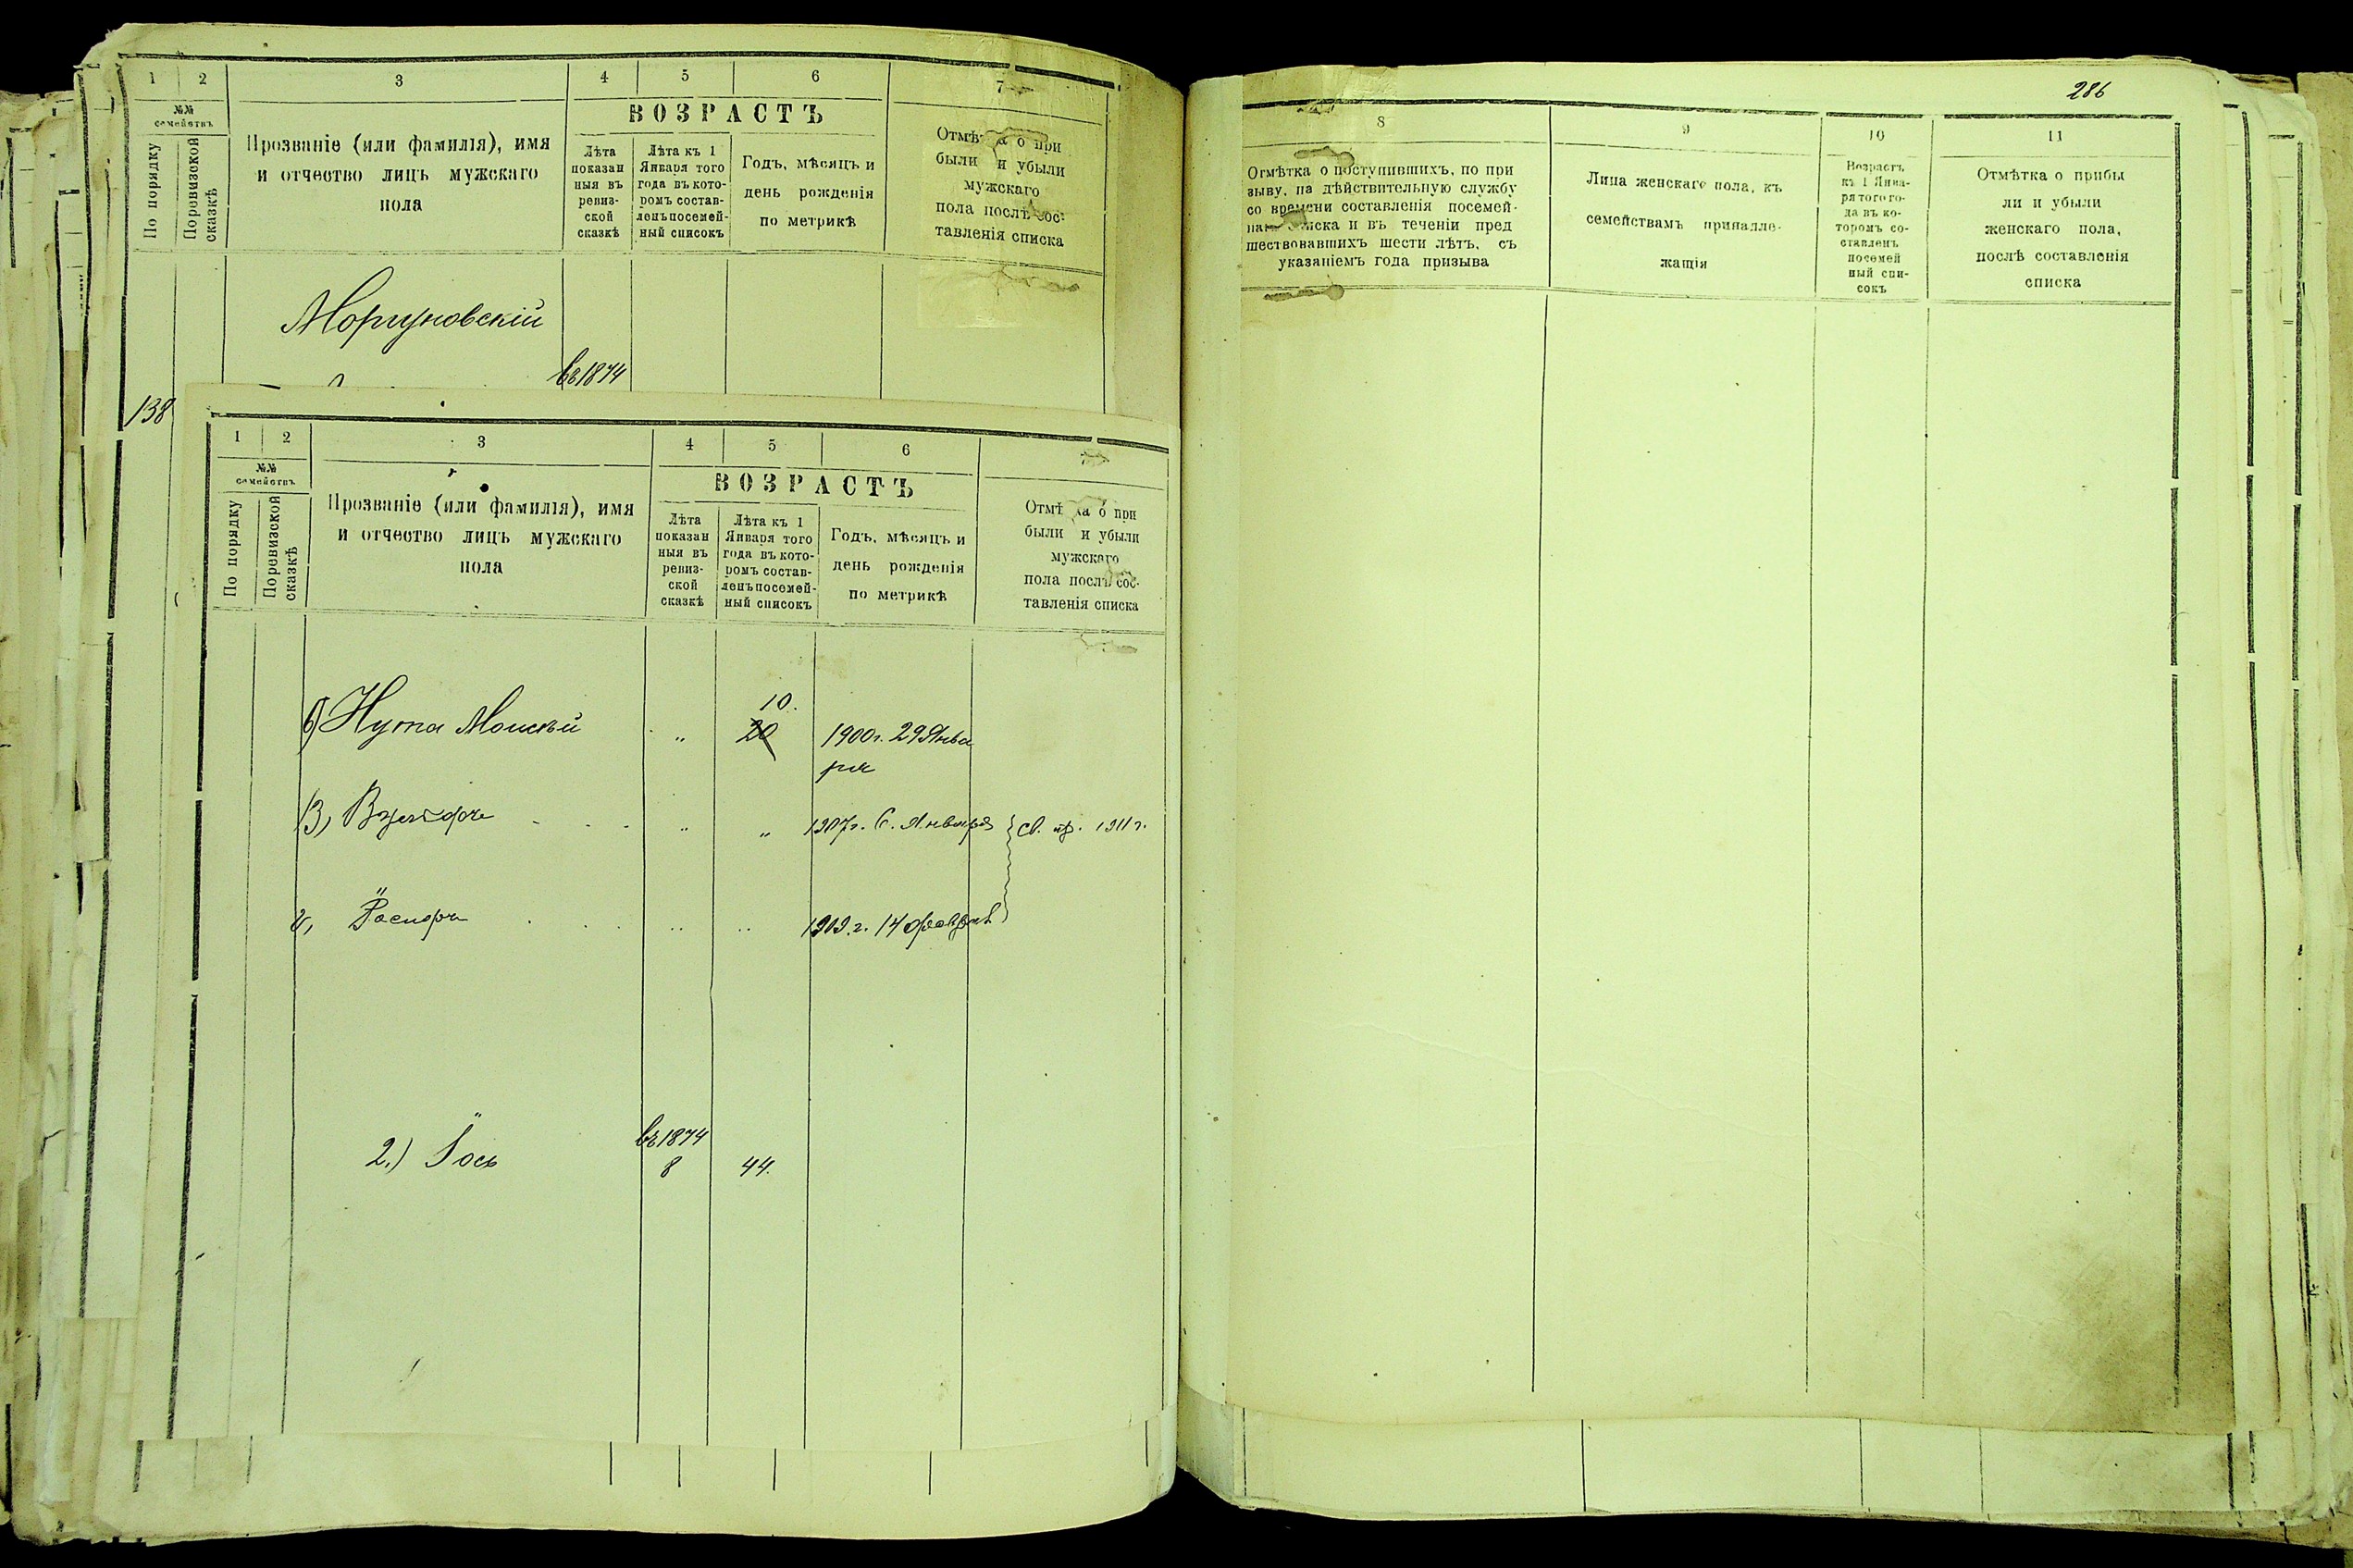 1 2 3 4 5 6 7
№№ семействъ
По порядку
По ревизской сказкѣ
Прозваніе (или фамилія), имя
и отчество лицъ мужскаго
пола
ВОЗРАСТЪ
Лѣта
показан
ныя въ
ревиз-
ской
сказкѣ
Лѣта къ 1
Января того
года въ кото-
ромъ состав-
ленъ посемей-
ный списокъ
Годъ, мѣсяцъ и
день рожденія
по метрикѣ
Отмѣтка о при
были и убыли
мужскаго
пола послѣ сос-
тавленія списка
въ 1874
138
1 2 3 4 5 6
№№
семействъ
По порядку
По ревизской
сказкѣ
Прозваніе (или фамилія), имя
и отчество лицъ мужскаго
пола
ВОЗРАСТЪ
Лѣта
показан
ныя въ
ревиз-
ской
сказкѣ
Лѣта къ 1
Января того
года въ кото-
ромъ состав-
ленъ посемей-
ный списокъ
Годъ, мѣсяцъ и
день рожденія
по метрикѣ
Отмѣ ка о при
были и убыли
мужскаго
пола послѣ сос-
тавленія списка
10.
Нута 20 1900 г. 29 Янва
ря
1907 г. 6. Января св. пр. 1911 г.
1909. г. 14 февраля
въ 1874
2.) Іось 8 44.
286
8 9 10 11
Отмѣтка о поступившихъ, по при
зыву, на дѣйствительную службу
со времени составленія посемей-
наго списка и въ теченіи пред
шествовавшихъ шести лѣтъ, съ
указаніемъ года призыва
Лица женскаго пола, къ
семействамъ принадле-
жащія
Возрастъ
къ 1 Янва-
ря того го-
да въ ко-
торомъ со-
ставленъ
посемей
ный спи-
сокъ
Отмѣтка о прибы
ли и убыли
женскаго пола,
послѣ составленія
списка